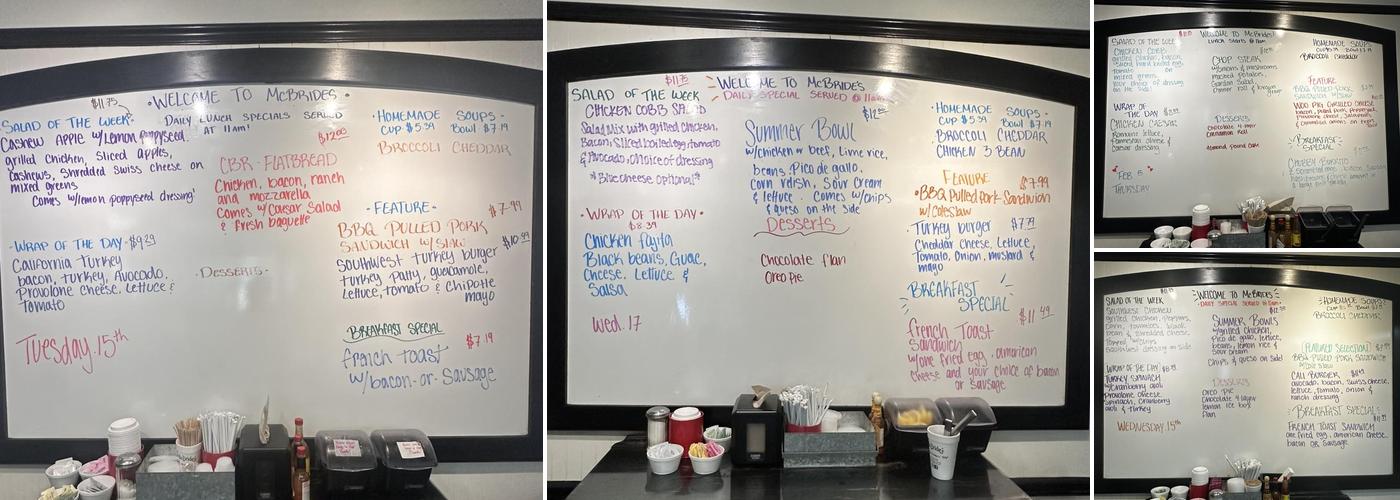 $11.75
SALAD OF THE WEEK
Cashew Apple w/Lemon Poppyseed
grilled chicken, sliced apples,
Cashews, Shredded Swiss cheese on
mixed greens
Comes w/lemon poppyseed dressing
·WRAP OF THE DAY· $9.29
California Turkey
bacon, turkey, Avocado,
Provolone cheese, Lettuce &
Tomato
Tuesday 15th
·WELCOME TO McBRIDES·
DAILY LUNCH SPECIALS SERVED
AT 11am!
$12.00
CBR-FLATBREAD
Chicken, bacon, ranch
and mozzarella
Comes w/Caesar Salad
& Fresh baguette
·DESSERTS·
·HOMEMADE SOUPS·
CUP $5.39 BOWL $7.19
BROCCOLI CHEDDAR
·FEATURE·
$7.99
BBQ PULLED PORK
SANDWICH W/ SLAW
$10.99
Southwest turkey burger
turkey patty, guacamole,
Lettuce, tomato & Chipotle
mayo
BREAKFAST SPECIAL
$7.19
french toast
w/bacon -or- Sausage
$11.75
SALAD OF THE WEEK
CHICKEN COBB SALAD
Salad Mix with grilled chicken,
Bacon, Sliced boiled egg, tomato
& Avocado, choice of dressing
*Blue cheese optional*
·WRAP OF THE DAY·
$8.39
Chicken fajita
Black beans, Guac,
Cheese, Lettuce &
Salsa
Wed. 17
WELCOME TO McBRIDES
DAILY SPECIAL SERVED @ 11am
Summer Bowl
w/chicken or beef, Lime rice,
beans, Pico de gallo,
Corn relish, Sour Cream
& lettuce. Comes w/chips
& queso on the side
Desserts
Chocolate flan
Oreo Pie
·HOMEMADE SOUPS·
CUP $5.39 BOWL $7.19
BROCCOLI CHEDDAR
CHICKEN 3 BEAN
FEATURE
$7.99
·BBQ Pulled Pork Sandwich
w/Coleslaw
·Turkey burger $7.79
Cheddar cheese, Lettuce,
Tomato, Onion, mustard &
mayo
BREAKFAST
SPECIAL
$11.49
french Toast
Sandwich
w/one fried egg, american
Cheese and your choice of bacon
or sausage
SALAD OF THE WEEK
CHICKEN COBB
grilled chicken, bacon,
Sliced hard boiled egg,
tomato
mixed greens
Your choice of dressing
on the side!
WRAP OF
THE DAY
CHICKEN CAESAR
Romaine lettuce,
Parmesan cheese &
Caesar dressing
FEB 5
THURSDAY
WELCOME TO McBRIDES!
LUNCH STARTS @ 11am
CHOP STEAK
w/onions & mushrooms
mashed potatoes,
Garden Salad,
DESSERTS
Chocolate 4 layer
Cinnamon Roll
Almond Pound Cake
HOMEMADE SOUPS
BROCCOLI CHEDDAR
FEATURE
BBQ PULLED PORK
SANDWICH w/SLAW
BREAKFAST
SPECIAL
CHUBBY BURRITO
SALAD OF THE WEEK
SOUTHWEST CHICKEN
grilled chicken, peppers,
corn, tomatoes, black
bean & shredded cheese
topped w/chips
Southwest dressing on side
WRAP OF THE DAY
TURKEY SPINACH
w/cranberry aioli
Provolone cheese,
Spinach, Cranberry
aioli & turkey
WEDNESDAY 15th
WELCOME TO McBRIDES
DAILY SPECIAL SERVED @ 11am
SUMMER BOWLS
w/grilled chicken,
Pico de gallo, lettuce,
beans, lemon rice &
Sour cream
Chips & queso on side
DESSERTS
OREO PIE
Chocolate 4 layer
lemon ice box
flan
HOMEMADE SOUPS
BROCCOLI CHEDDAR
FEATURED SELECTION
BBQ PULLED PORK SANDWICH
CALI BURGER
avocado, bacon, swiss cheese,
lettuce, tomato, onion &
ranch dressing
BREAKFAST SPECIAL
FRENCH TOAST SANDWICH
one fried egg, american cheese,
bacon OR sausage